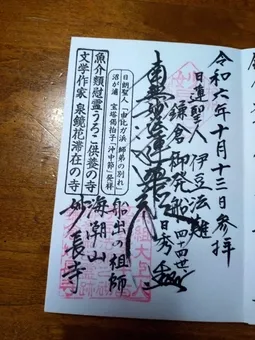 令和六年十月十三日参拝
日蓮聖人 伊豆法難
鎌倉御発船
四十四世 日秀
南無妙法蓮華経
船出の祖師
海潮山
妙長寺
日朗聖人「由比が浜 師弟の別れ」
沼が浦 宝塔偈拍子「沖中節」発祥
魚介類慰霊うろこ供養の寺
文学作家 泉鏡花滞在の寺